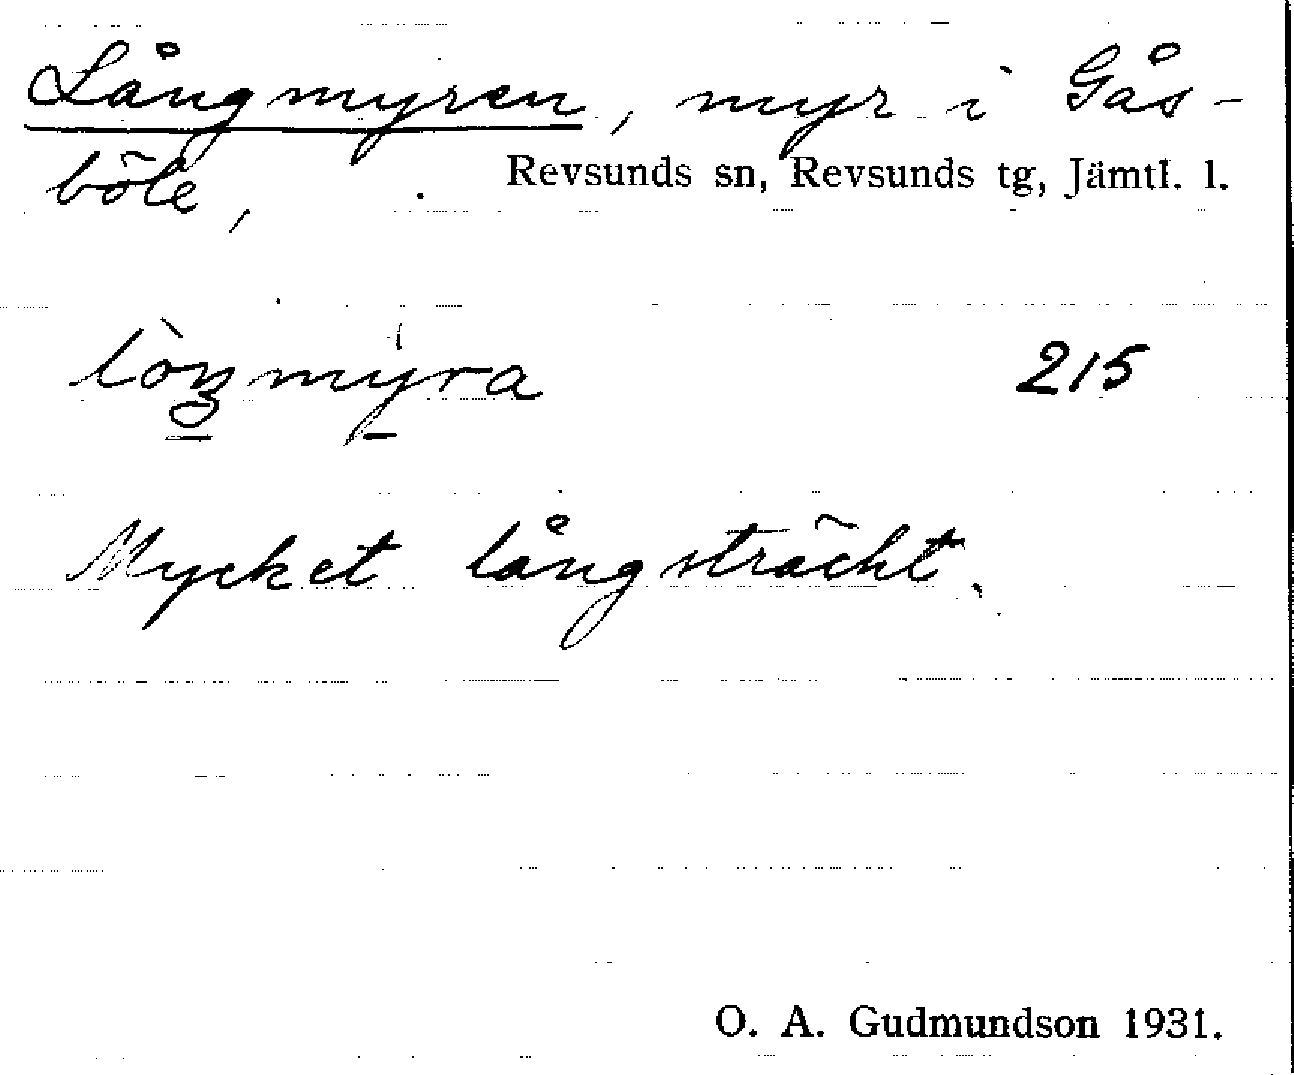 Långmyren, myr i Gås-
böle, Revsunds sn, Revsunds tg, Jämtl. l.
215
Mycket långsträckt.
O. A. Gudmundson 1931.